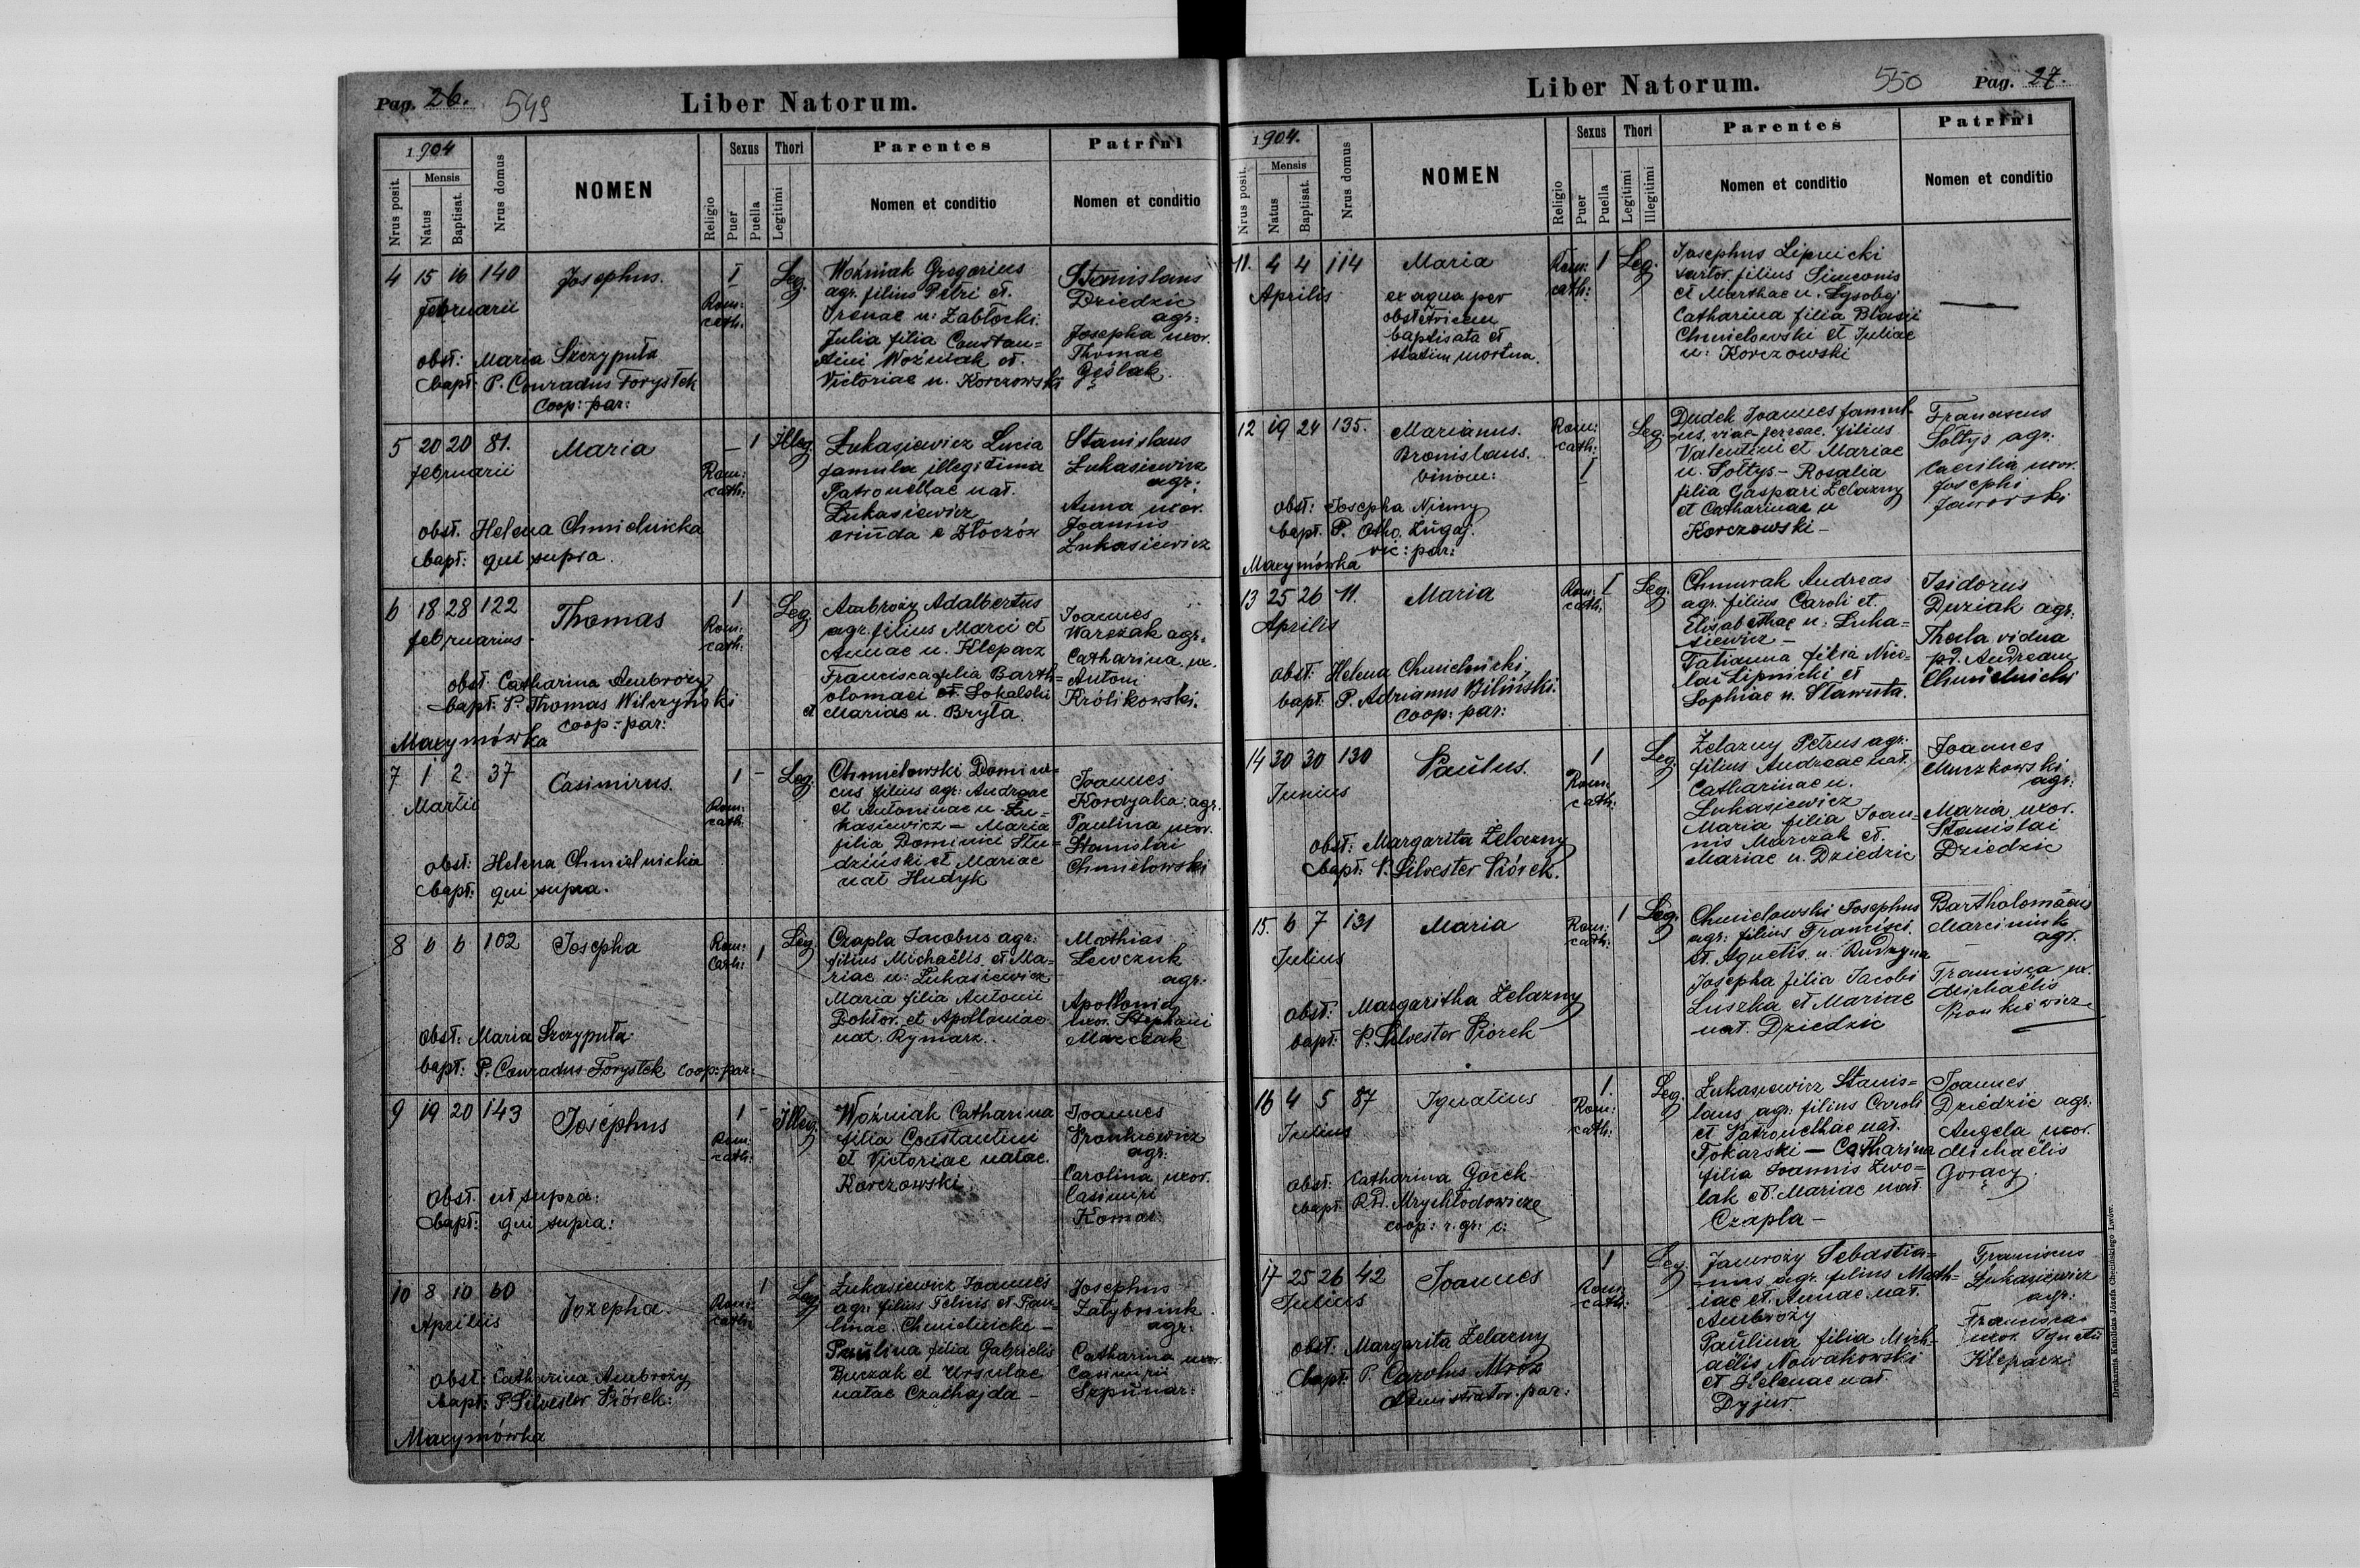 Pag. 26.
549
Liber Natorum.
1904
Nrus posit.
Mensis
Natus
Baptisat.
Nrus domus
NOMEN
Religio
Sexus
Puer
Puella
Thori
Legitimi
Parentes
Nomen et conditio
Patrini
Nomen et conditio
4 15 16 140 Josephus. I Leg.
februarii
Rom:
cath.
obst: Maria Szczyputa
bapt: P. Conradus Forystek
coop: par:
Woźniak Gregorius
agr. filius Petri et
Irenae n: Zabłocki.
Julia filia Constan=
tini Woźniak et
Victoriae n. Korczowski
Stanislaus
Dziedzic
agr:
Josepha uxor.
Thomae
Gęślak.
5 20 20 81. Maria – 1 Illeg.
februarii
Rom:
cath:
obst. Helena Chmielnicka
bapt: qui supra.
Łukasiewicz Lucia
famula illegitima
Patronellae nat.
Łukasiewicz
oriunda e Złoczów
Stanislaus
Łukasiewicz
agr:
Anna uxor.
Joannis
Łukasiewicz
6 18 28 122 Thomas 1 Leg.
februarius.
Rom:
cath:
obst. Catharina Ambroży
bapt. P. Thomas Wilczyński
coop: par:
Maxymówka
Ambroży Adalbertus
agr. filius Marci et
Annae n. Klepacz
Francisca filia Barth=
olomaei et Sokalski
et Mariae n. Bryła
Joannes
Warczak agr.
Catharina ux.
Antoni
Królikowski.
7 1 2 37 Casimirus. 1 – Leg.
Martii
Rom:
cath:
obst: Helena Chmielnickia
bapt: qui supra.
Chmielowski Domini=
cus filius agr: Andreae
et Antoninae n. Łu=
kasiewicz – Maria
filia Dominici Stu=
dziński et Mariae
nat Hudyk
Joannes
Kordyaka agr.
Paulina uxor.
Stanislai
Chmielowski
8 6 6 102 Josepha 1 Leg.
Rom:
Cath:
obst: Maria Szczyputa:
bapt: P. Conradus Forystek coop: par:
Czapla Jacobus agr:
filius Michaëlis et Ma=
riae n: Łukasiewicz
Maria filia Antonii
Doktor et Apolloniae
nat. Rymarz.
Mathias
Lewczuk
agr:
Apollonia
uxor. Stephani
Marczak
9 19 20 143 Josephus 1 – Illeg.
Rom:
cath:
obst. ut supra:
bapt: qui supra:
Woźniak Catharina
filia Constantini
et Victoriae natae.
Korczowski
Joannes
Pronkiewicz
agr:
Carolina uxor.
Casimiri
Komar
10 8 10 60 Jozepha. 1 Leg.
Aprilis
Rom:
cath:
obst: Catharina Ambroży
bapt: P. Silvester Piórek:
Maxymówka
Łukasiewicz Joannes
agr: filius Felicis et Pau=
linae Chmielnicki –
Paulina filia Gabrielis
et Ursulae
natae Czachajda –
Josephus
Załybniuk
agr:
Catharina uxor.
Casimiri
Szpunar:
Liber Natorum.
550
Pag. 27.
1904.
Nrus posit.
Mensis
Natus
Baptisat.
Nrus domus
NOMEN
Religio
Sexus
Puer
Puella
Thori
Legitimi
Illegitimi
Parentes
Nomen et conditio
Patrini
Nomen et conditio
11. 4 4 114 Maria 1 Leg.
Aprilis
Rom:
cath:
ex aqua per
obstetricem
baptisata et
statim mortua.
Josephus Lipnicki
sartor filius Simeonis
et Marthae n. Łysobej
Catharina filia Blasii
Chmielowski et Juliae
n: Korczowski
12 19 24 135. Marianus. Leg.
Bronislaus.
binom:
Rom:
cath:
I
obst: Josepha Niemy
bapt. P. Otho. Zugaj.
vic: par:
Maxymówka
Dudek Joannes famul=
us, viae ferreae. filius
Valentini et Mariae
n. Sołtys – Rosalia
filia Gaspari Żelazny
et Catharinae n
Korczowski –
Franciscus
Sołtys agr:
Caecilia uxor.
Josephi
Jaworski
13 25 26 11. Maria I Leg.
Aprilis
Rom:
cath:
obst: Helena Chmielnicki.
bapt: P. Adrianus Biliński.
coop: par:
Chmurak Andreas
agr. filius Caroli et
Elisabethae n: Łuka=
siewicz –
Tatianna filia Nico=
lai Lipnicki et
Sophiae n. Stawuta.
Isidorus
Duziak agr:
Thecla vidua
pd. Andream
Chmielnicki
14 30 30 130 Paulus. 1 Leg.
Junius
Rom:
cath:
obst: Margarita Żelazny
bapt: P. Silvester Piórek.
Żelazny Petrus agr:
filius Andreae nat.
Catharinae n.
Łukasiewicz
Maria filia Joan=
nis Marczak et
Mariae n. Dziedzic
Joannes
Muszkowski
agr:
Maria uxor.
Stanislai
Dziedzic
15. 6 7 131 Maria 1 Leg.
Julius
Rom:
cath:
obst: Margaritha Żelazny
bapt: P. Silvester Piórek
Chmielowski Josephus
agr: filius Francisci
et Agnetis n. Rudzyna
Josepha filia Jacobi
Luszka et Mariae
nat. Dziedzic
Bartholomäus
Marciniuk
agr.
Francisca ux.
Michaëlis
Pronkiewicz
16 4 5 87 Ignatius 1. Leg.
Julius
Rom:
cath:
obst: Catharina Gocek
bapt: Rd. Mrychłodowicze
coop: r. gr: c:
Łukasiewicz Stanis=
laus agr: filius Caroli
et Patronellae nat.
Tokarski – Catharina
filia Joannis Zwo=
lak et Mariae nat.
Czapla –
Joannes
Dziedzic agr:
Angela uxor.
Michaëlis
Gorący
17 25 26 42 Joannes 1 Leg.
Julius
Rom:
cath:
obst: Margarita Żelazny
bapt: P. Carolus Mróz
administrator. par:
Jamroży Sebastia=
nus agr. filius Math=
iae et Annae nat.
Ambroży
Paulina filia Mich=
aëlis Nowakowski
et Helenae nat
Dyjur.
Franciscus
Łukasiewicz
agr:
Francisca
uxor. Ignatii
Klepacz
Drukarnia Katolicka Józefa Chęcińskiego Lwów.